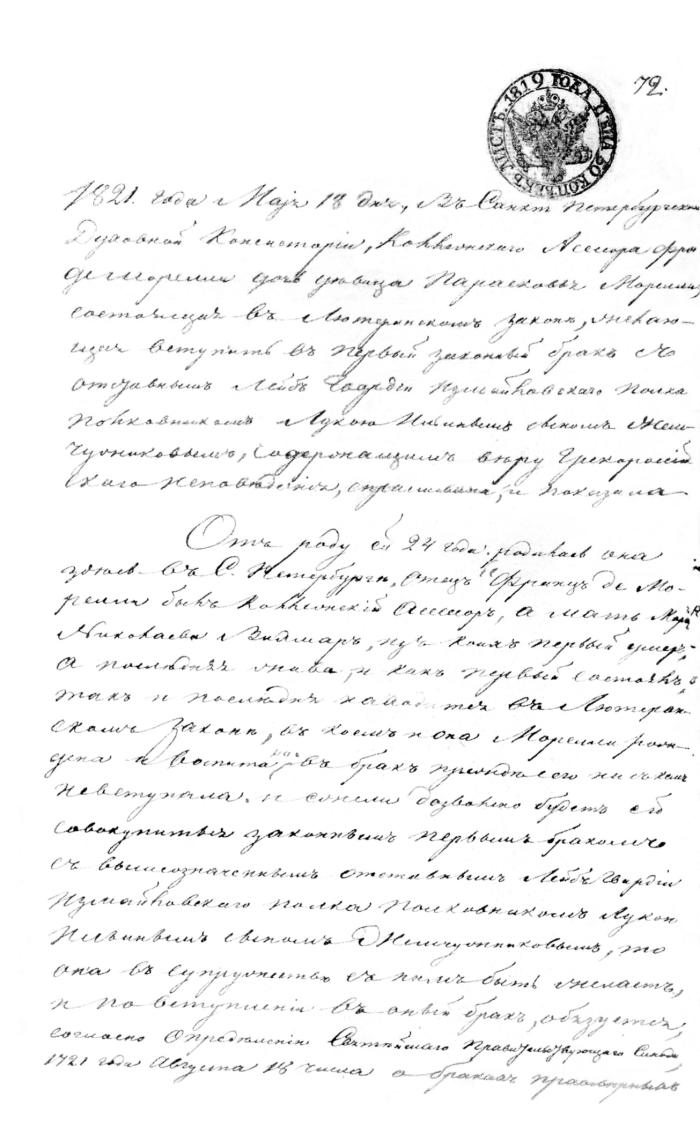 ЛИСТЪ. 1819 ГОДА ЦѢНА 50 КОПѢЕКЪ
72.
1821. года Маія 18 дня, Въ Санкт Петербургской
Духовной Консисторіи, Коллежскаго Асессора Фран
де Морелли дочь девица Парасковья Морелли,
состоящая въ Лютеранскомъ законѣ, желаю-
щая вступить въ первый законный бракъ съ
отставнымъ Лейбъ Гвардіи Измайловскаго Полка
Полковникомъ Лукою Ильинымъ сыномъ Жем-
чужниковымъ, содержащимъ вѣру Грекороссій
скаго исповѣданія, спрашивана, и показала
Отъ роду ей 24 года, родилась она
здѣсь въ С. Петербургѣ, отецъ Францъ де Мо-
релли былъ Коллежскій Асессоръ, а мать
Николаева Веймаръ, изъ коихъ первый умеръ,
а последняя жива, и какъ первый состоялъ,
такъ и последняя находится въ Лютеран-
скомъ законѣ, въ коемъ и она Морелли рож-
дена и воспитана, въ бракъ прежде сего ни съ кемъ
невступала. и ежели дозволено будетъ ей
совокупиться законнымъ первымъ бракомъ
съ вышеозначеннымъ отставнымъ Лейбъ Гвардіи
Измайловскаго полка Полковникомъ Лукою
Ильинымъ сыномъ Жемчужниковымъ, то
она въ супружествѣ съ нимъ быть желаетъ,
и по вступленіи въ оный бракъ, обязуется,
согласно Опредѣленію Святѣйшаго Правительствующаго Синода,
1721 года Августа 18 числа о бракахъ правоверныхъ